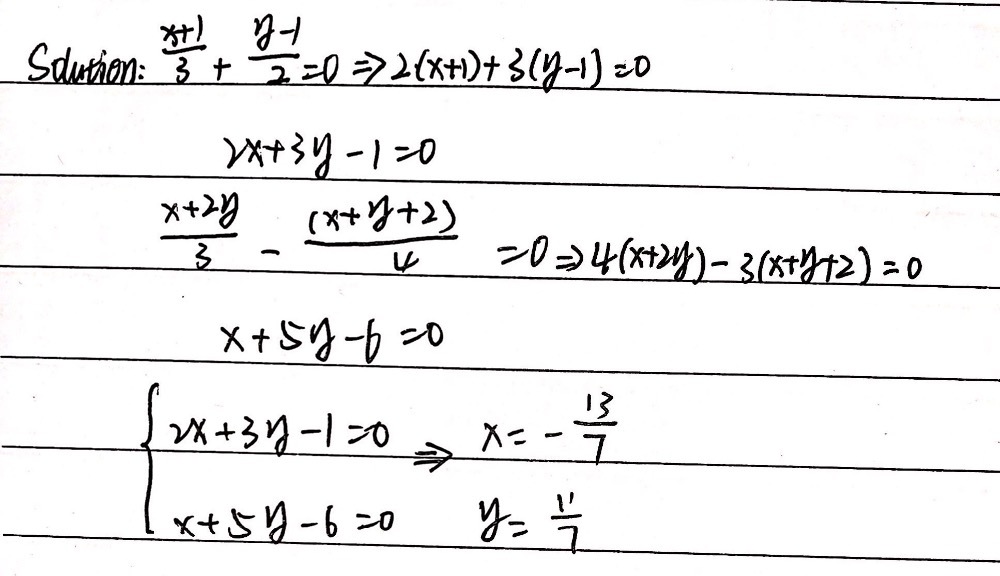 Solution: \frac{x+1}{3} + \frac{y-1}{2} = 0 ⇒ 2(x+1) + 3(y-1) = 0
2x + 3y - 1 = 0
\frac{x+2y}{3} - \frac{(x+y+2)}{4} = 0 ⇒ 4(x+2y) - 3(x+y+2) = 0
x + 5y - 6 = 0
{ 2x + 3y - 1 = 0 ⇒ x = -\frac{13}{7}
x + 5y - 6 = 0 y = \frac{11}{7}